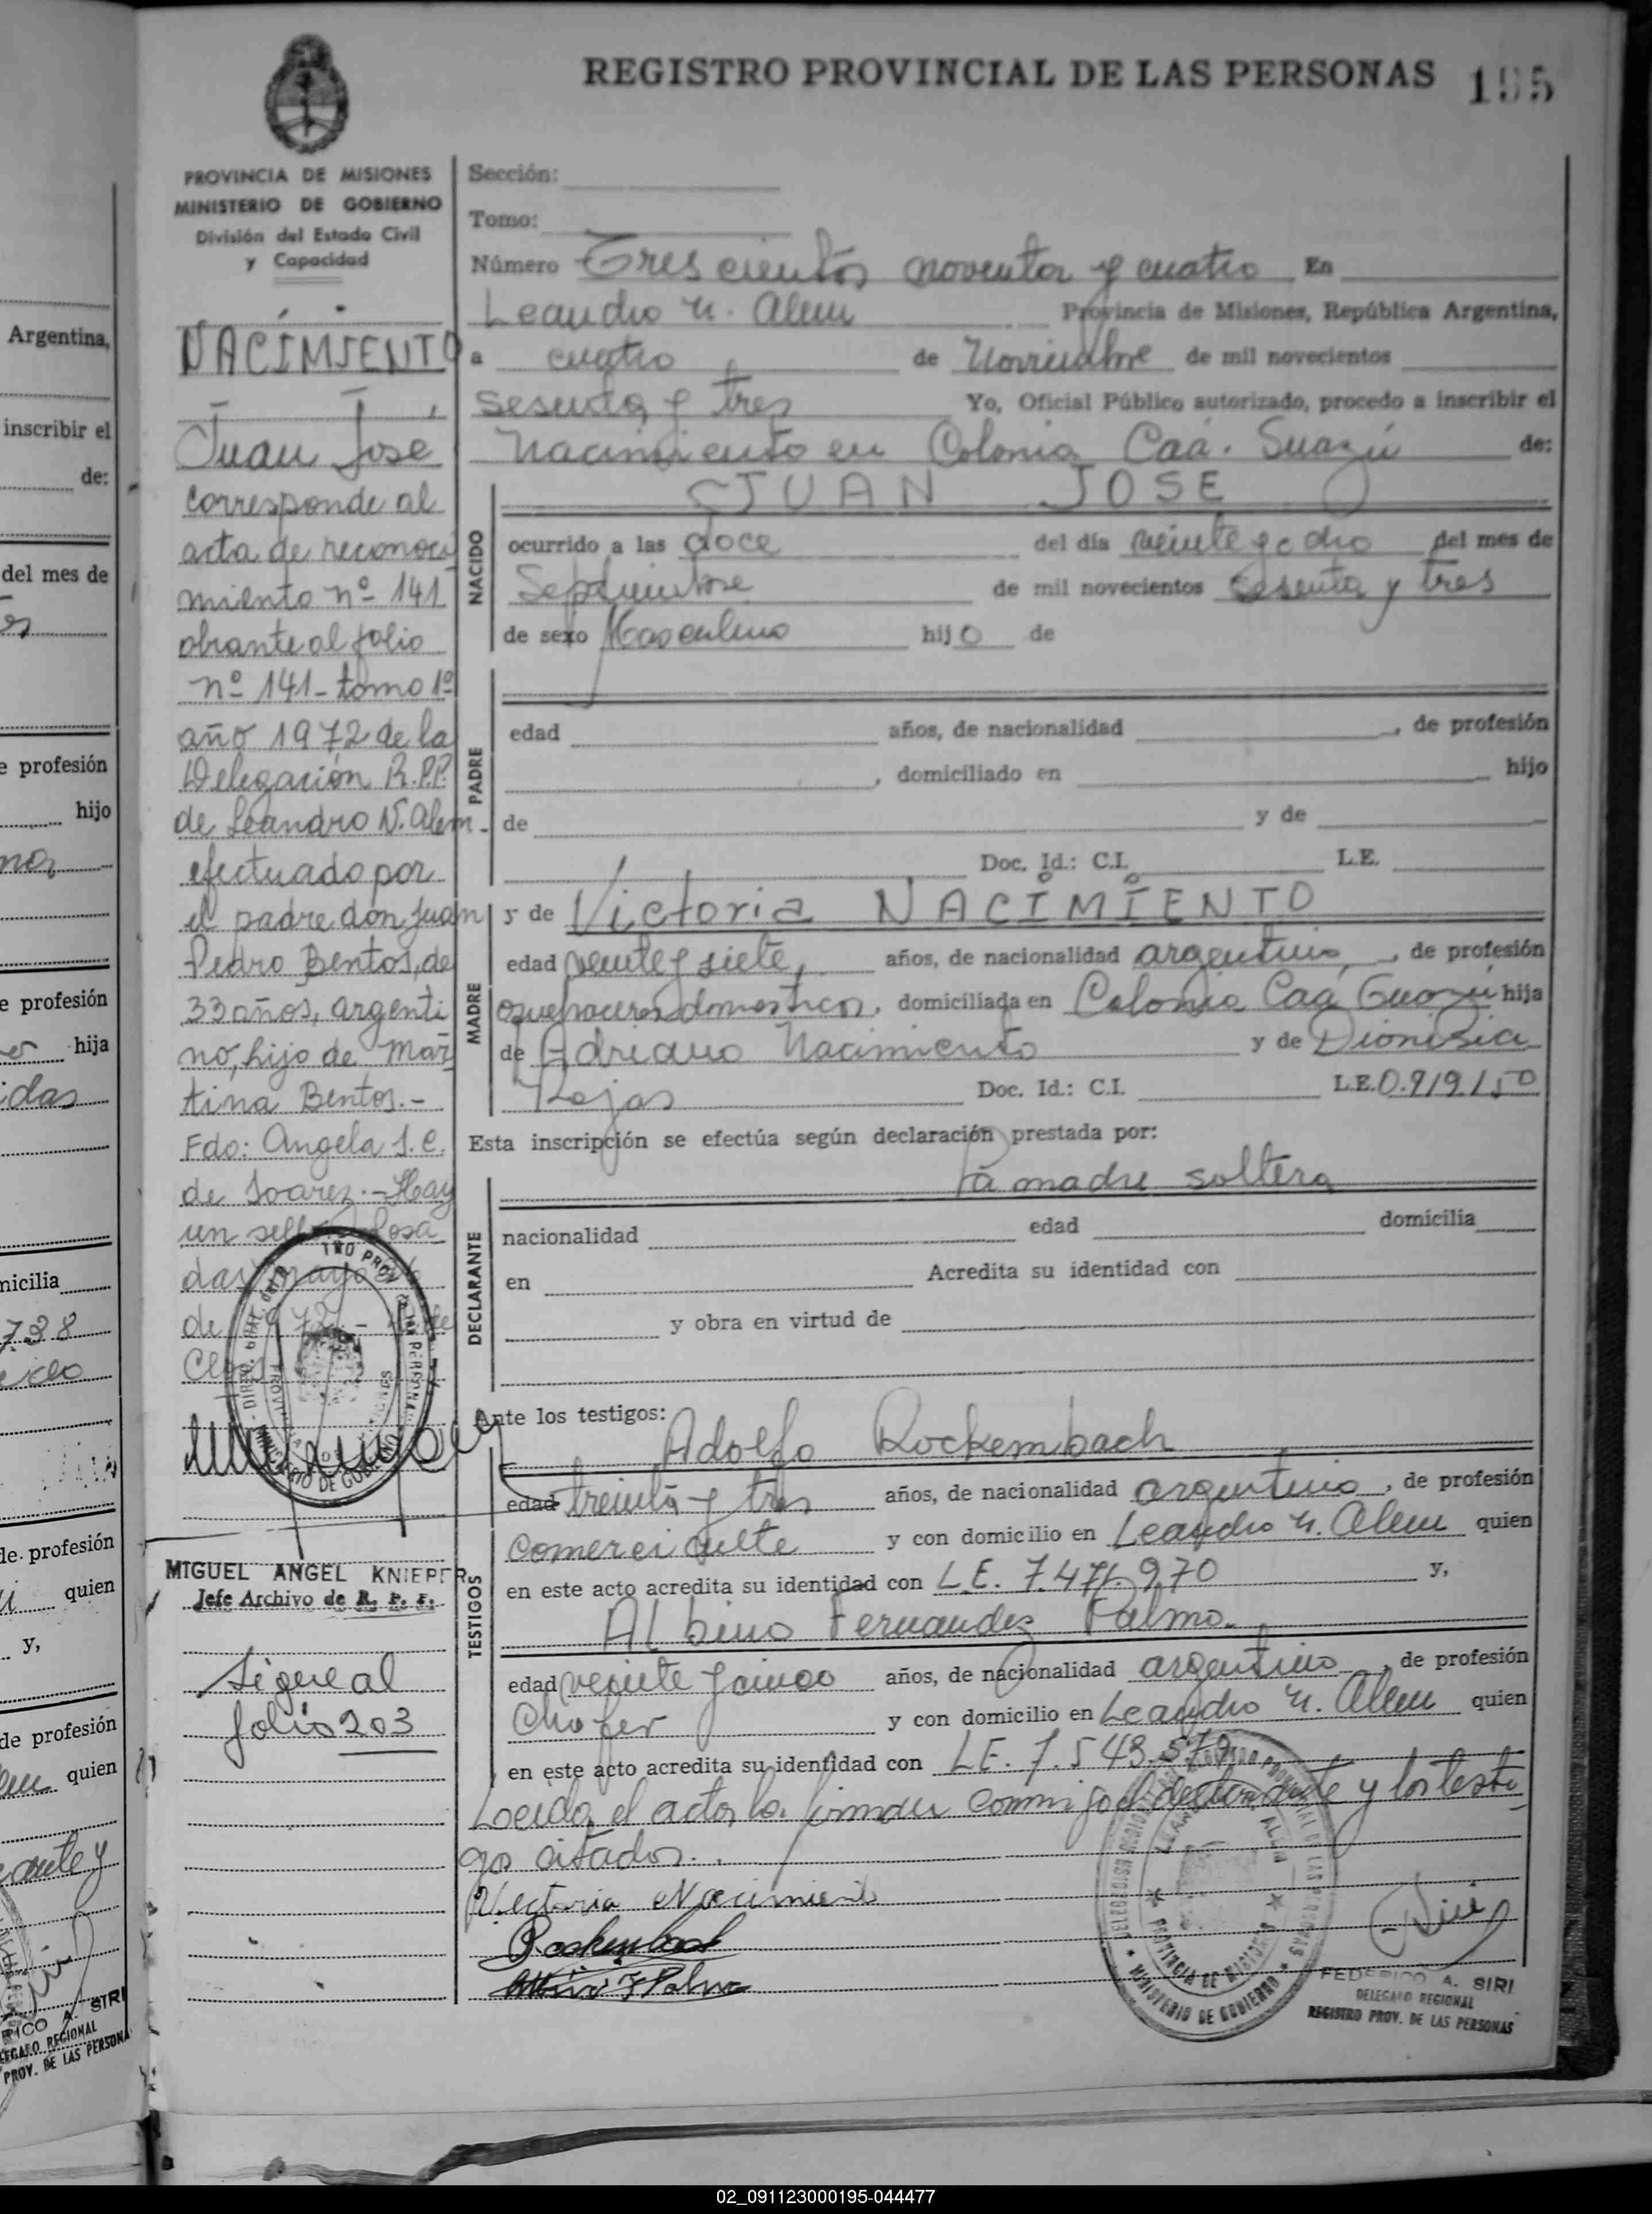 REGISTRO PROVINCIAL DE LAS PERSONAS 195
PROVINCIA DE MISIONES
MINISTERIO DE GOBIERNO
División del Estado Civil
y Capacidad
NACIMIENTO
Juan José
corresponde al
acta de reconoci
miento nº 141
obrante al folio
nº 141 - tomo 1º
año 1972 de la
Delegación R.P.P.
de Leandro N. Alem.
efectuado por
el padre don Juan
Pedro Bentos, de
33 años, argenti
no, hijo de Mar
tina Bentos.-
Fdo: Angela S. C.
de Soarez.- Hay
un sello
de
MIGUEL ANGEL KNIEPERS
Jefe Archivo de R. P. P.
Sigue al
folio 203
Sección:
Tomo:
Número Trescientos noventa y cuatro En
Leandro N. Alem Provincia de Misiones, República Argentina,
a cuatro de Noviembre de mil novecientos
sesenta y tres Yo, Oficial Público autorizado, procedo a inscribir el
Nacimiento en Colonia Caá. Guazú de:
JUAN JOSE
NACIDO
ocurrido a las doce del día veinte y ocho del mes de
Septiembre de mil novecientos sesenta y tres
de sexo Masculino hijo de
PADRE
edad años, de nacionalidad , de profesión
, domiciliado en hijo
de y de
Doc. Id.: C.I. L.E.
MADRE
y de Victoria NACIMIENTO
edad veinte y siete, años, de nacionalidad argentina, de profesión
quehaceres domesticos, domiciliada en Colonia Caá Guazú hija
de Adriano Nacimiento y de Dionisia
Rojas Doc. Id.: C.I. L.E. 0.919.150
Esta inscripción se efectúa según declaración prestada por:
la madre soltera
DECLARANTE
nacionalidad edad domicilia
en Acredita su identidad con
y obra en virtud de
Ante los testigos:
TESTIGOS
Adolfo Rockembach
edad treinta y tres años, de nacionalidad argentino, de profesión
comerciante y con domicilio en Leandro N. Alem quien
en este acto acredita su identidad con L.E. 7.471.970 y,
Albino Fernandez Palmo.
edad veinte y cinco años, de nacionalidad argentino, de profesión
Chofer y con domicilio en Leandro N. Alem quien
en este acto acredita su identidad con L.E. 7.543.579
Leida el acta, la firman conmigo el declarante y los testi
gos citados.
Victoria Nacimiento
Rockembach
FEDERICO A. SIRI
DELEGADO REGIONAL
REGISTRO PROV. DE LAS PERSONAS
PROVINCIA DE MISIONES
MINISTERIO DE GOBIERNO
Argentina,
inscribir el
de:
del mes de
e profesión
hijo
e profesión
hija
idas
micilia
738
de profesión
quien
y,
de profesión
quien
ante y
RICO A. SIRI
LEGADO REGIONAL
PROV. DE LAS PERSONA
02_091123000195-044477